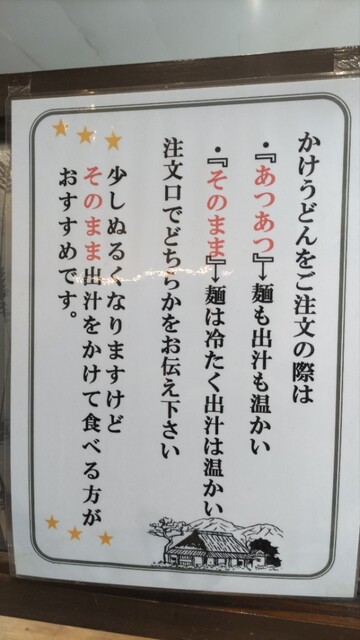 かけうどんをご注文の際は
・『あつあつ』→麺も出汁も温かい
・『そのまま』→麺は冷たく出汁は温かい
注文口でどちらかをお伝え下さい
少しぬるくなりますけど
そのまま出汁をかけて食べる方が
おすすめです。